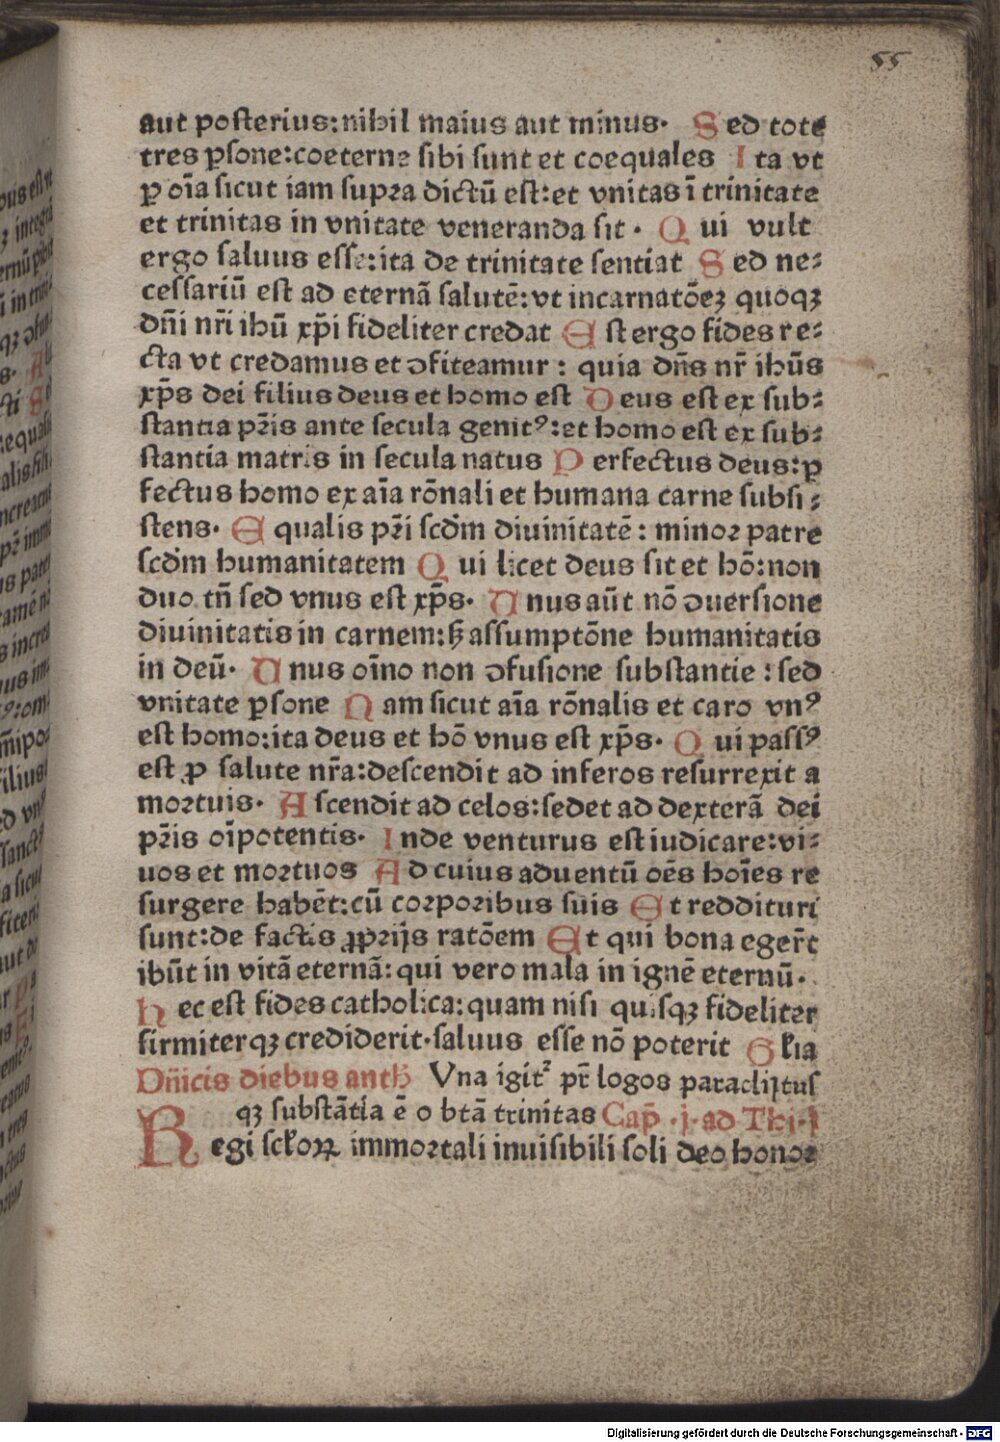 55
aut posterius:nihil maius aut minus· Sed tote
tres ꝑsone:coeterne sibi sunt et coequales Ita vt
ꝑ oı̄a sicut iam supꝛa dictū est:et vnitas ī trinitate
et trinitas in vnitate veneranda sit · Qui vult
ergo saluus esse:ita de trinitate sentiat Sed ne⸗
cessariū est ad eternā salutē:vt incarnatōeꝫ quoqꝫ
dn̄i nr̄i ihū xp̄i fideliter credat Est ergo fides re⸗
cta vt credamus et ꝯfiteamur : quia dn̄s nr̄ ihūs
xp̄s dei filius deus et homo est Deus est ex sub⸗
stantia pr̄is ante secula genitꝰ:et homo est ex sub⸗
stantia matris in secula natus Perfectus deus:ꝑ
fectus homo ex aı̄a rōnali et humana carne subsi⸗
stens· Equalis pr̄i scd̄m diuinitatē : minoꝛ patre
scd̄m humanitatem Qui licet deus sit et hō:non
duo tn̄ sed vnus est xp̄s· Unus aūt nō ꝯuersione
diuinitatis in carnem:ꝜƷ assumptōne humanitatis
in deū· Unus oı̄no non ꝯfusione substantie : sed
vnitate ꝑsone Nam sicut aı̄a rōnalis et caro vnꝰ
est homo:ita deus et hō vnus est xp̄s· Qui passꝰ
est ꝓ salute nr̄a:descendit ad inferos resurrexit a
moꝛtuis· Ascendit ad celos:sedet ad dexterā dei
pr̄is oı̄potentis· Inde venturus est iudicare:vi⸗
uos et moꝛtuos Ad cuius aduentū oēs hoı̄es re
surgere habēt:cū coꝛpoꝛibus suis Et reddituri
sunt:de factis ꝓpꝛijs ratōem Et qui bona egerr̄t
ibūt in vitā eternā:qui vero mala in ignē eternū·
Hec est fides catholica:quam nisi quisqꝫ fideliter
firmiterqꝫ crediderit·saluus esse nō poterit Głia
Dn̄icis diebus antħ Vna igit᷑ pr̄ logos paraclijtus
qꝫ substātia ē o btā trinitas Cap̄ ·j· ad Thi·j
Regi scłoꝝ immoꝛtali inuisibili soli deo honoꝛ
Digitalisierung gefördert durch die Deutsche Forschungsgemeinschaft - DFG